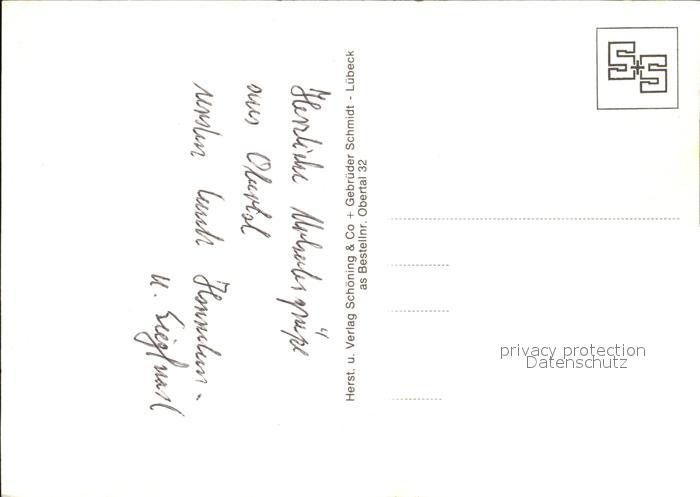 Herzliche Urlaubsgrüße
aus Obertal
u.
Herst. u. Verlag Schöning & Co + Gebrüder Schmidt - Lübeck
as Bestellnr. Obertal 32
S+S
privacy protection
Datenschutz